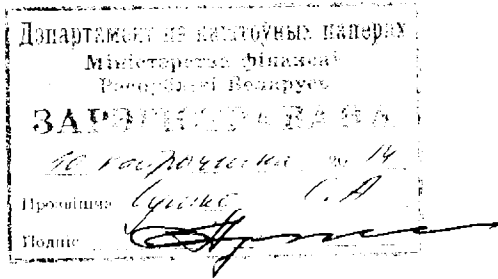 Дэпартамент па каштоўных паперах
Міністэрства фінансаў
Рэспублікі Беларусь
ЗАРЭГІСТРАВАНА
10 кастрычніка 14
Прозвішча С.А
Подпіс